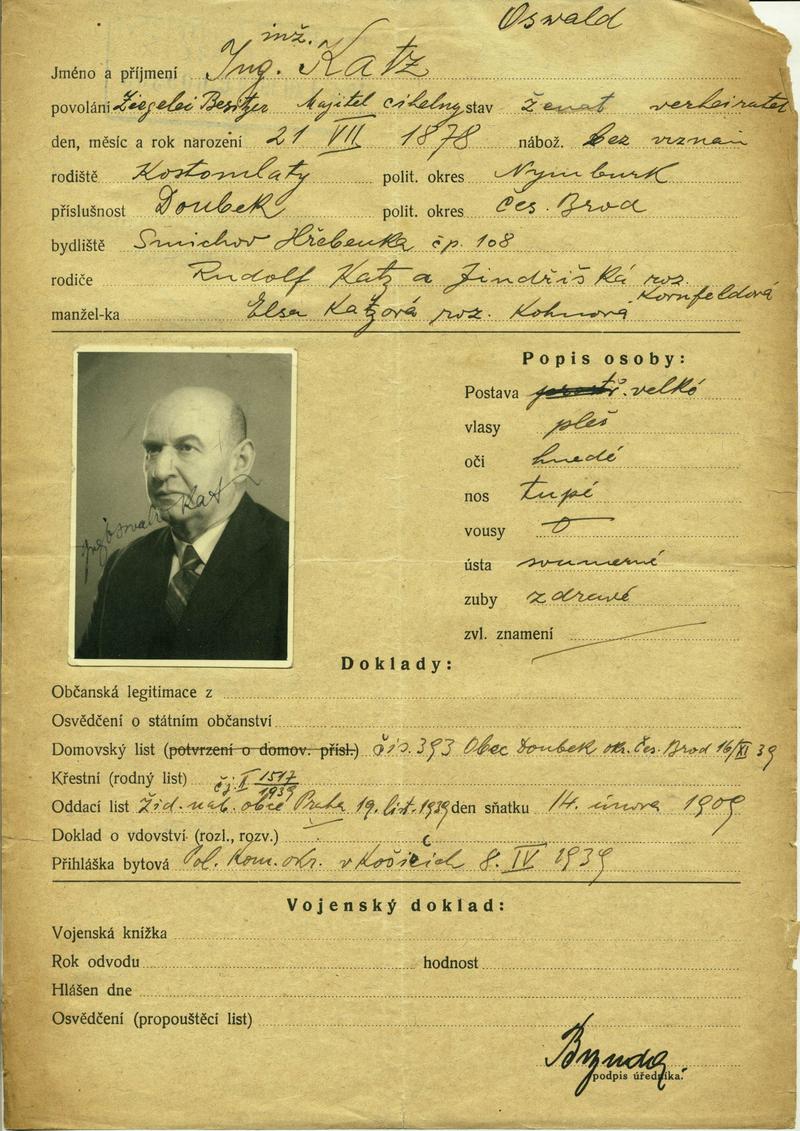 Oswald
inž.
Jméno a příjmení Ing. Katz
povolání Ziegelei Besitzer Majitel cihelny stav ženat verheiratet
den, měsíc a rok narození 21 VII 1878 nábož. bez vyznán
rodiště Kostomlaty polit. okres Nymburk
příslušnost Doubek polit. okres Čes. Brod
bydliště Smichov Hřebenka čp. 108
rodiče Rudolf Katz a Jindřiška roz. Kornfeldová
manžel-ka Elsa Katzová roz. Kohnová
Ing Oswald Katz
Popis osoby:
Postava velká
vlasy pleš
oči hnedé
nos tupé
vousy 0
ústa soumerné
zuby zdravé
zvl. znamení
Doklady:
Občanská legitimace z
Osvědčení o státním občanství
Domovský list (potvrzení o domov. přísl.) čís. 393 Obec Doubek okr. Čes. Brod 16/XI 39
Křestní (rodný list) čj. II 1517/1939
Oddací list Žid. náb. obce Praha 19. list. 1939 den sňatku 14. února 1909
Doklad o vdovství (rozl., rozv.)
Přihláška bytová Pol. Kom. okr. v Košicích 8. IV 1939
Vojenský doklad:
Vojenská knížka
Rok odvodu hodnost
Hlášen dne
Osvědčení (propouštěcí list)
podpis úředníka.